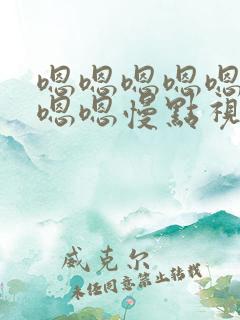 嗯嗯嗯嗯嗯
嗯嗯慢點視
威克尔
未经同意禁止转载